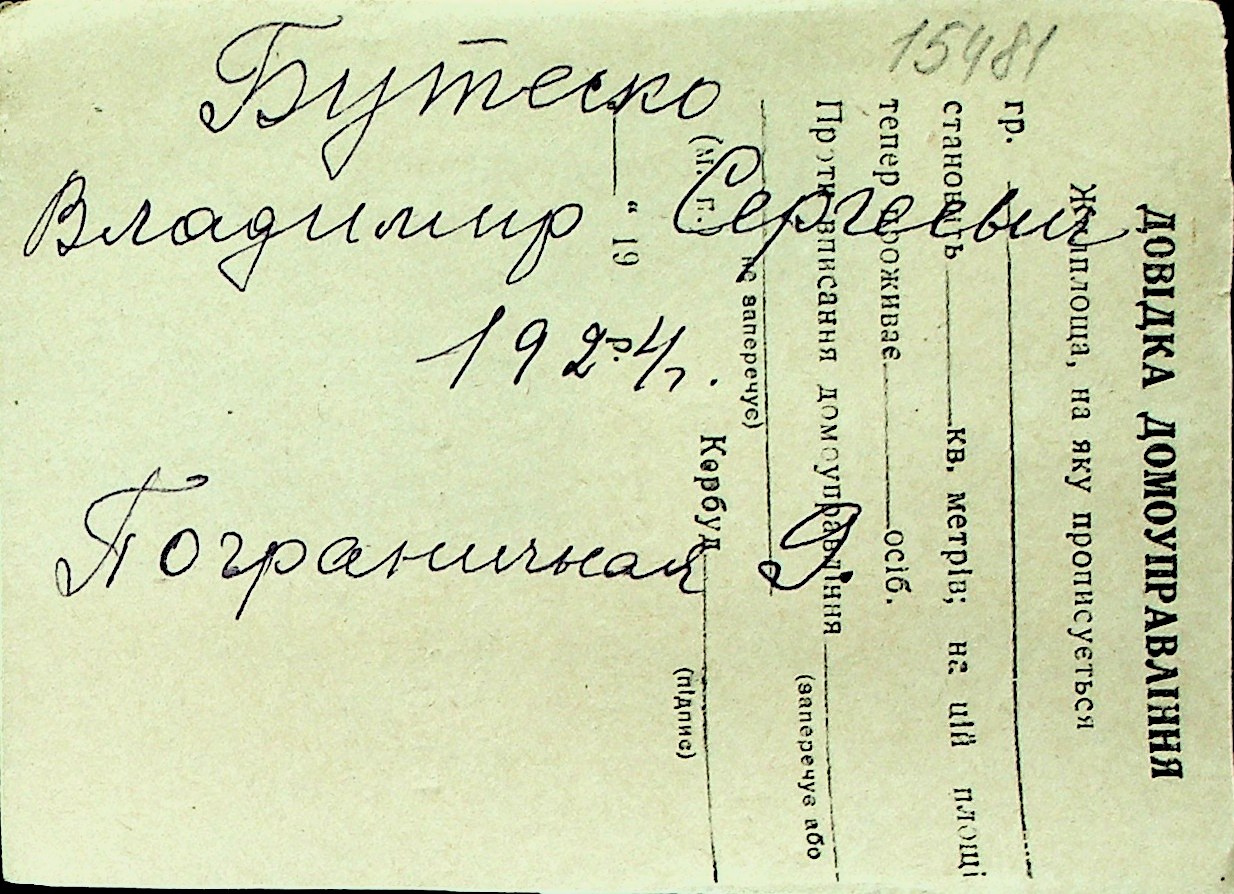 15481
Бутеско
Владимир Сергеевич
1924 г.
Пограничная 9.
ДОВІДКА ДОМОУПРАВЛІННЯ
Жилплоща, на яку прописується
гр.
становить кв. метрів; на цій площі
тепер проживає осіб.
Проти вписання домоуправління
(заперечує або
не заперечує)
(М. П.) Кербуд
(підпис)
“ 19